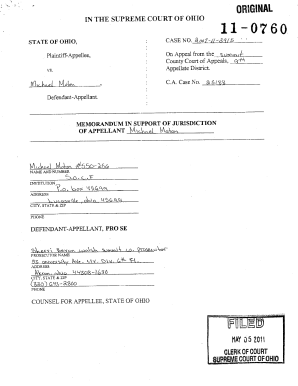 ORIGINAL
IN THE SUPREME COURT OF OHIO
11-0760
STATE OF OHIO,
Plaintiff-Appellee,
vs.
Michael Moton
Defendant-Appellant.
CASE NO.
On Appeal from the Summit
County Court of Appeals, 9th
Appellate District.
C.A. Case No.
MEMORANDUM IN SUPPORT OF JURISDICTION
OF APPELLANT Michael Moton
Michael Moton #550-256
NAME AND NUMBER
S.O.C.F
INSTITUTION
P.O. box 45699
ADDRESS
Lucasville, ohio 45699
CITY, STATE & ZIP
PHONE
DEFENDANT-APPELLANT, PRO SE
Sherri Bevan Walsh Summit co. Prosecutor
PROSECUTOR NAME
53 University Ave. 6th Fl.
ADDRESS
Akron, ohio 44308-1680
CITY, STATE & ZIP
(330) 643-2800
PHONE
COUNSEL FOR APPELLEE, STATE OF OHIO
FILED
MAY 05 2011
CLERK OF COURT
SUPREME COURT OF OHIO